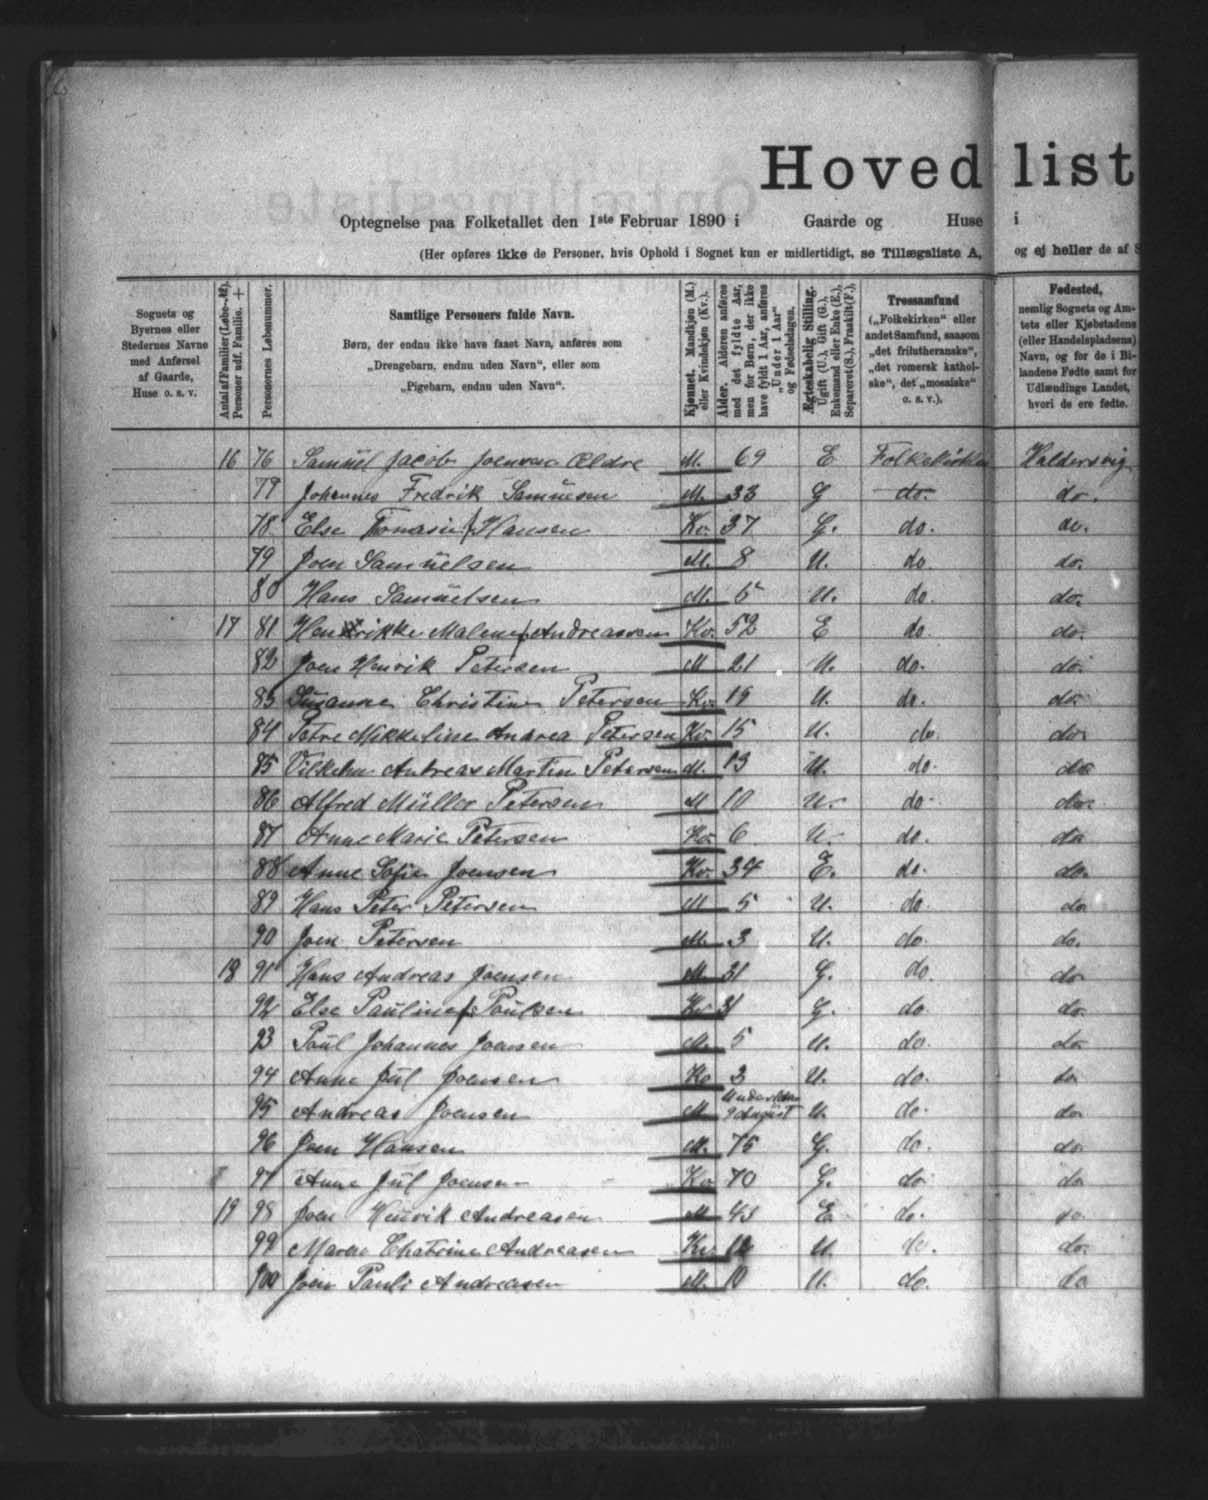 Hovedlist
Optegnelse paa Folketallet den 1ste Februar 1890 i Gaarde og Huse i
(Her opføres ikke de Personer, hvis Ophold i Sognet kun er midlertidigt, se Tillægsliste A, og ej heller de af S
Sognets og Byernes eller Stedernes Navne med Anførsel af Gaarde, Huse o. s. v.
Antal af Familier (Løbe-№). Personer udf. Familie. +
Personernes Løbenummer.
Samtlige Personers fulde Navn.
Børn, der endnu ikke have faaet Navn, anføres som
„Drengebarn, endnu uden Navn“, eller som
„Pigebarn, endnu uden Navn“.
Kjønnet. Mandkjøn (M.) eller Kvindekjøn (Kv.).
Alder. Alderen anføres med det fyldte Aar, men for Børn, der ikke have fyldt 1 Aar, anføres „Under 1 Aar“ og Fødselsdagen.
Ægteskabelig Stilling. Ugift (U.), Gift (G.), Enkemand eller Enke (E.), Separeret (S.), Fraskilt (F.),
Trossamfund
(„Folkekirken“ eller andet Samfund, saasom „det frilutheranske“, „det romersk katholske“, det „mosaiske“ o. s. v.).
Fødested,
nemlig Sognets og Amtets eller Kjøbstadens (eller Handelspladsens) Navn, og for de i Bilandene Fødte samt for Udlændinge Landet, hvori de ere fødte.
16 76 Samuel Jacob Joensen Ældre M. 69 E Folkekirken Haldersvig
77 Johannes Fredrik Samuelsen M. 33 G do. do.
78 Else Tomasia f Hansen Kv. 37 G. do. do.
79 Joen Samuelsen M. 8 U. do do.
80 Hans Samuelsen M. 5 U. do. do.
17 81 Henrikke Malene f Andreassen Kv. 52 E do. do.
82 Joen Henrik Petersen M 21 U. do. do.
83 Susanne Christine Petersen Kv. 19 U. do. do.
84 Petre Mikkeline Andrea Petersen Kv. 15 U. do do.
85 Vilhelm Andreas Martin Petersen M. 13 U. do. do
86 Alfred Müller Petersen M 10 U. do. do.
87 Anne Marie Petersen Kv. 6 U. do. do
88 Anne Sofie Joensen Kv. 34 E. do. do.
89 Hans Peter Petersen M 5 U. do do
90 Joen Petersen M. 3 U. do. do.
18 91 Hans Andreas Joensen M. 31 G. do. do
92 Else Pauline f Poulsen Kv 31 G. do. do.
93 Poul Johannes Joensen M. 5 U. do. do
94 Anne Jul Joensen Kv 3 U. do. do
95 Andreas Joensen M. Under 1 Aar 9 August U. do. do
96 Joen Hansen M. 75 G. do. do.
97 Anne Jul Joensen Kv 70 G. do do
19 98 Joen Henrik Andreasen M 43 E do. do
99 Maren Chatrine Andreasen Kv 12 U. do. do.
100 Joen Pauli Andreasen M. 10 U. do. do